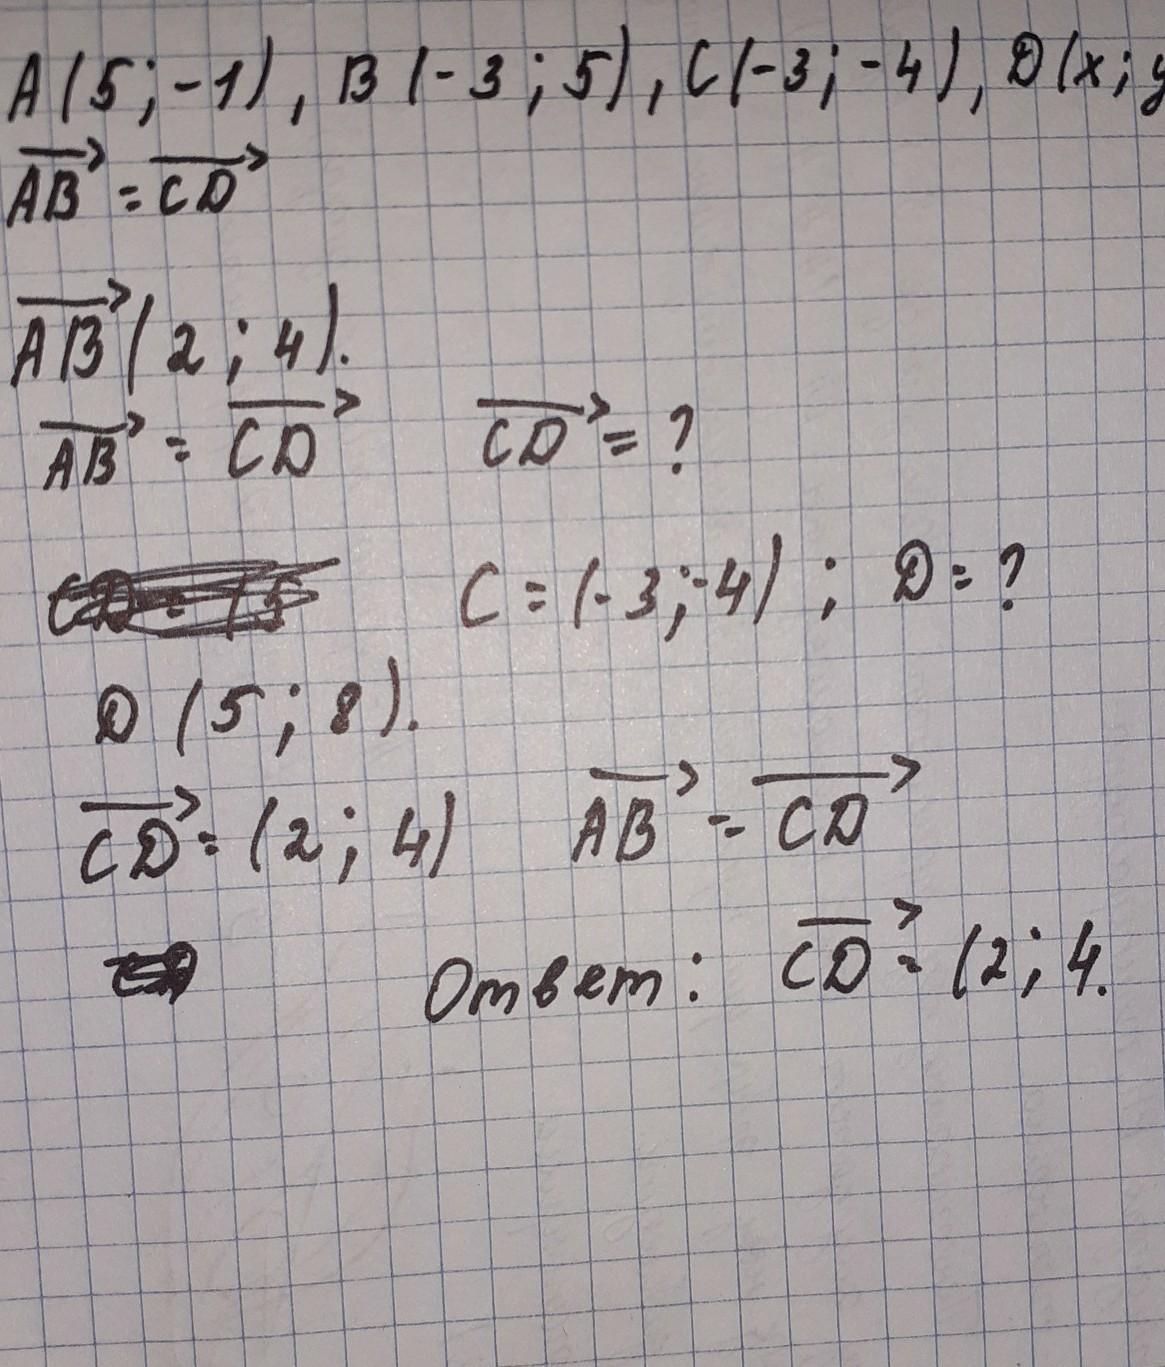 A(5;-1), B(-3;5), C(-3;-4), D(x;y
AB = CD
AB(2;4).
AB = CD CD = ?
C = (-3;-4); D = ?
D (5;8).
CD = (2;4) AB = CD
Ответ: CD = (2;4.